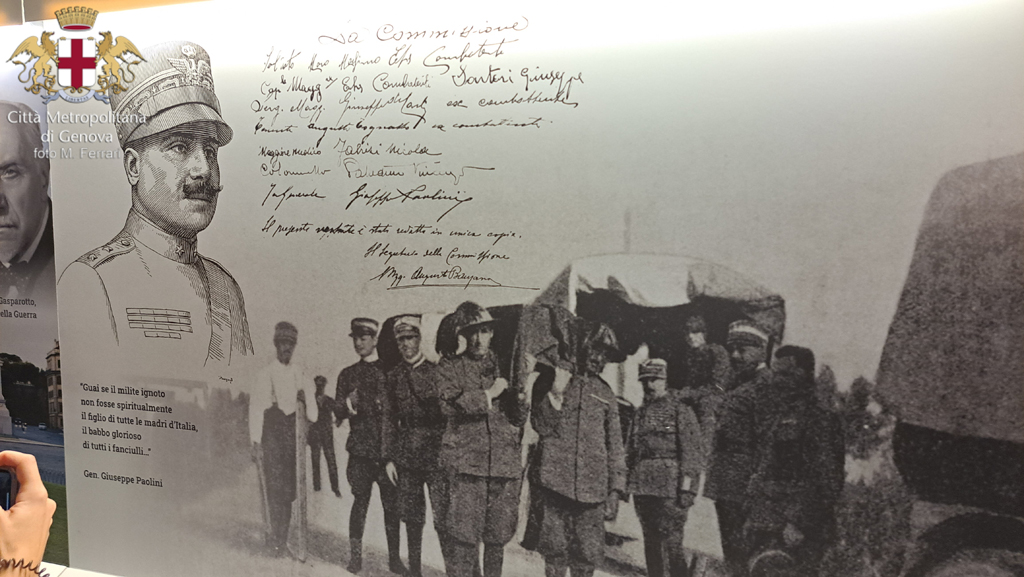 Città Metropolitana
di Genova
foto M. Ferrari
Gasparotto,
ella Guerra
La Commissione
Soldato Combattenti
Cap. Magg. Combattenti Sartori Giuseppe
Serg. Magg. Giuseppe ex combattente
Tenente Augusto ex combattente.
Maggiore medico Fabrizi Nicola
Colonnello Paladini Vincenzo
Giuseppe Paolini
Il presente verbale è stato redatto in unica copia.
Il Segretario della Commissione
Augusto
"Guai se il milite ignoto
non fosse spiritualmente
il figlio di tutte le madri d'Italia,
il babbo glorioso
di tutti i fanciulli..."
Gen. Giuseppe Paolini